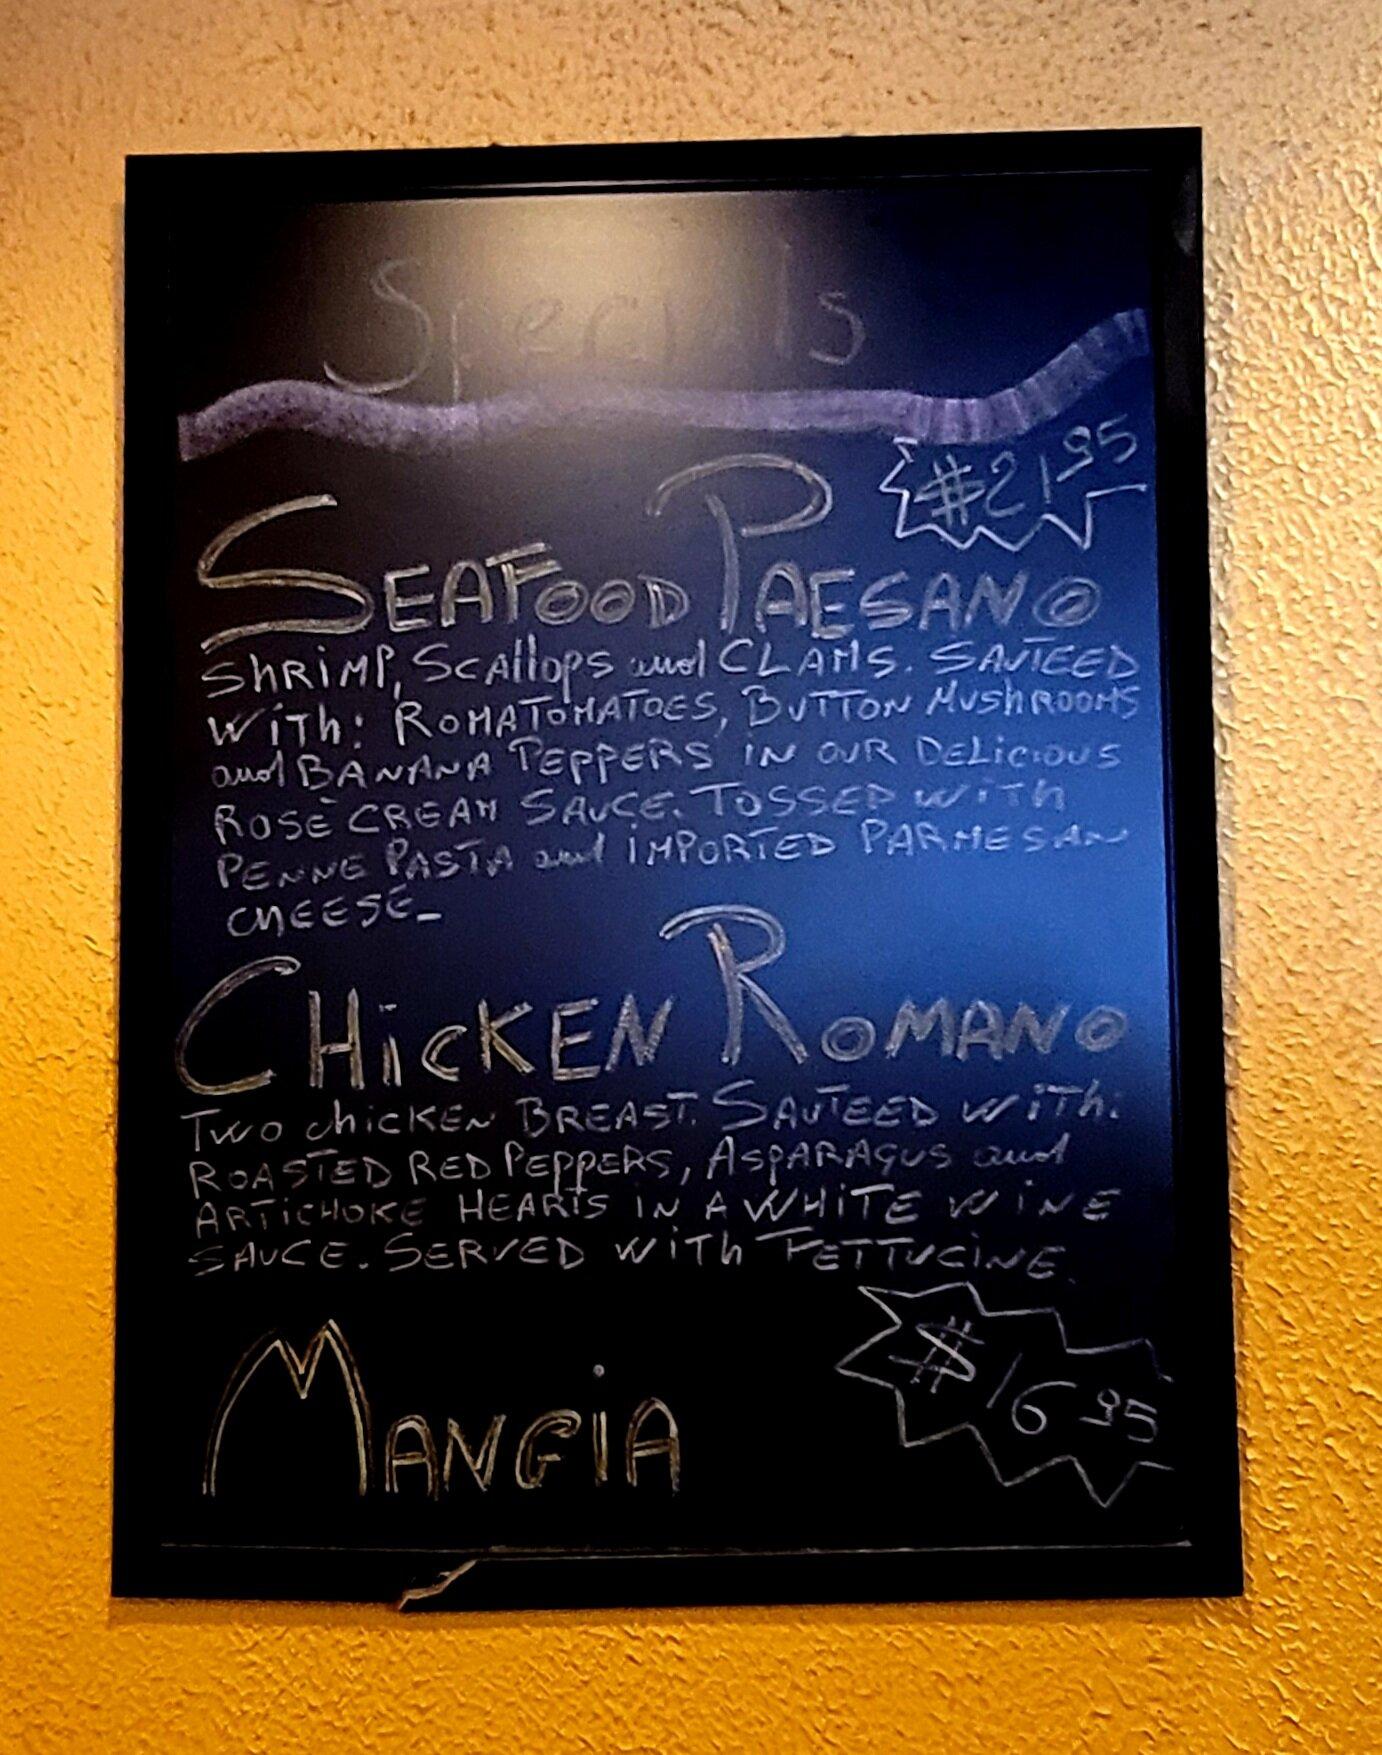 Specials
$21.95
SEAFOOD PAESANO
SHRIMP, SCALLOPS and CLAMS. SAUTEED
WITH: ROMA TOMATOES, BUTTON MUSHROOMS
and BANANA PEPPERS IN OUR DELICIOUS
ROSÈ CREAM SAUCE. TOSSED WITH
PENNE PASTA and IMPORTED PARMESAN
CHEESE_
CHICKEN ROMANO
TWO CHICKEN BREAST. SAUTEED WITH:
ROASTED RED PEPPERS, ASPARAGUS and
ARTICHOKE HEARTS IN A WHITE WINE
SAUCE. SERVED WITH FETTUCINE.
$16 95
MANGIA